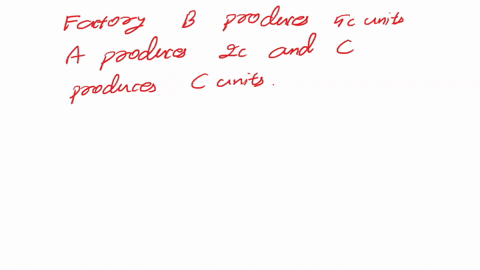 Factory B produces 4c units
A produces 2c and C
produces C units.